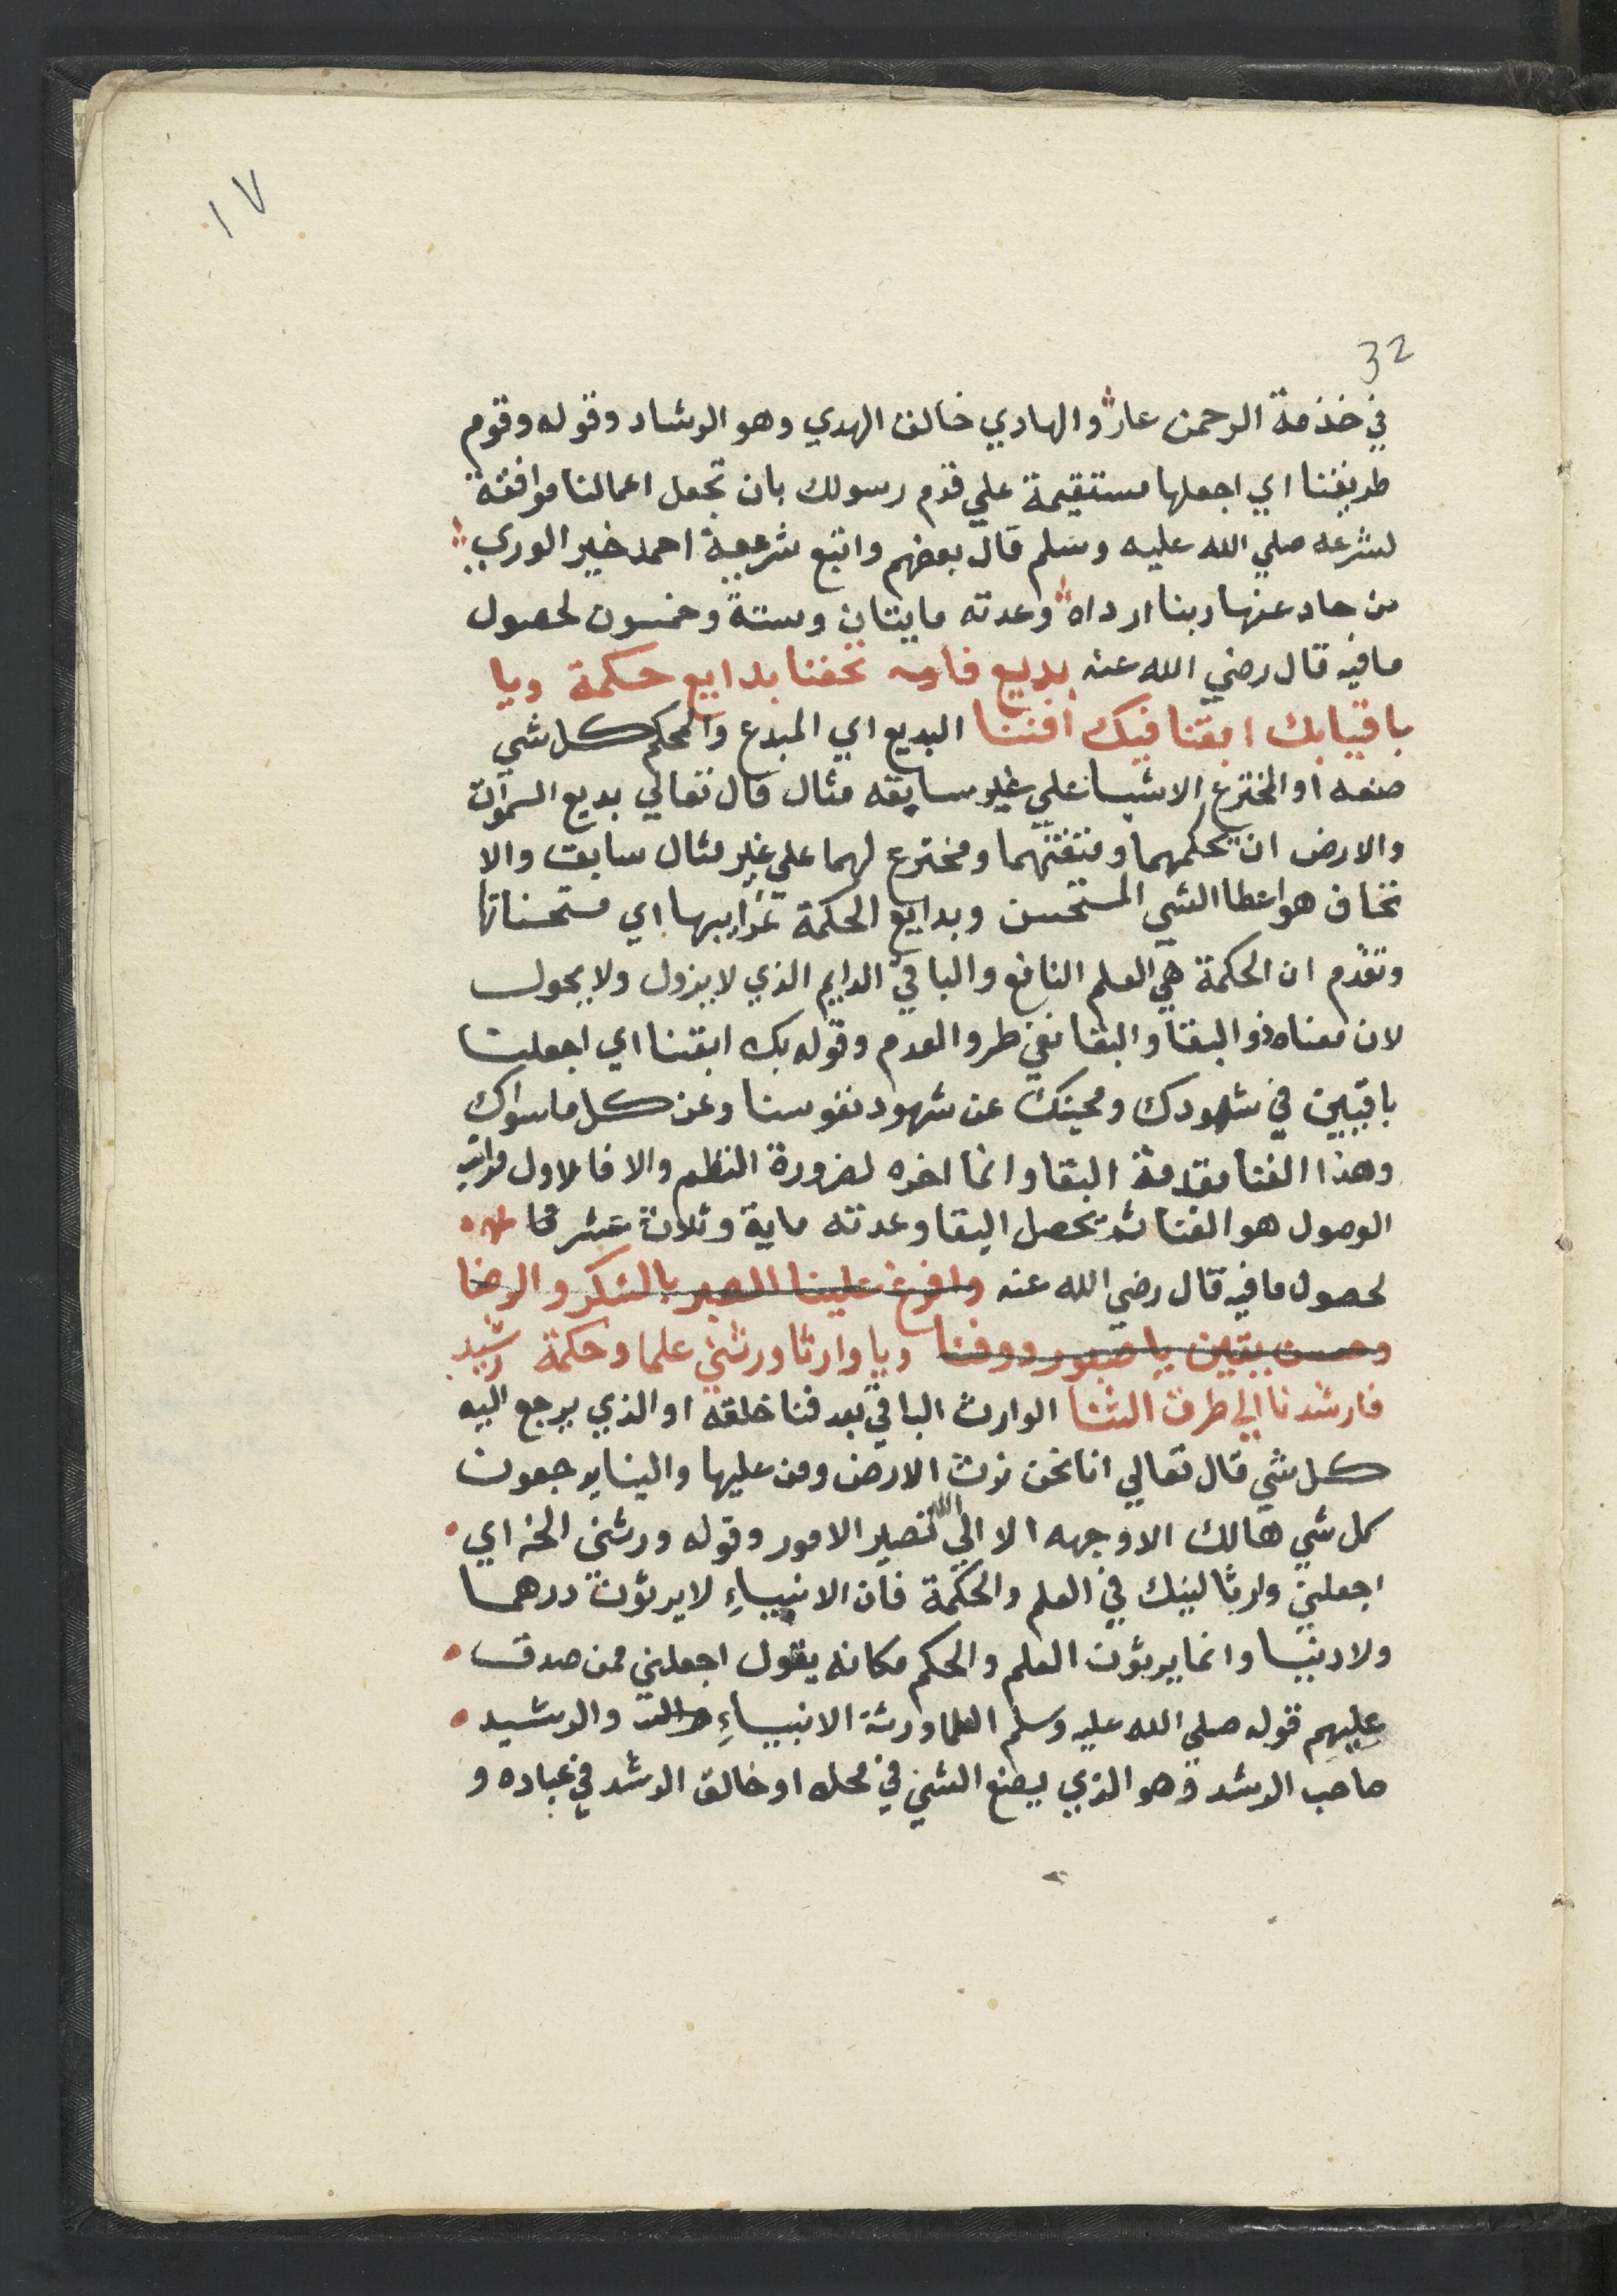 ١٧
32
في خذمة الرحمن عار والهادي خالق الهدي وهو الرشاد وقوله وقوم
طريقنا اي اجعلها مستقيمة علي قدم رسولك بان تجعل اعمالنا موافقة
لشرعه صلي الله عليه وسلم قال بعضهم واتبع شرعية احمد خير الوري
من حاد عنها ربنا ارداه وعدته مايتان وستة وخمسون لحصول
مافيه قال رضي الله عنه بديع تحفنا بدايع حكمة ويا
باقيا بك ابقنا فيك افننا البديع اي المبدع والمحكم كل شي
صنعه او المخترع الاشيا علي غير سابقه مثال قال تعالي بديع السموات
والارض ان يحكمهما ومتقنهما ومخترع لهما علي غير مثال سابق والا
تحاف هو اعطا الشي المستحسن وبدايع الحكمة غرايبها اي مستحسناتها
وتقدم ان الحكمة هي العلم النافع والباقي الدايم الذي لا يزول ولا يحول
لان معناه ذو البقا والبقا نفي طرو العدم وقوله بك ابقنا اي اجعلنا
باقيين في شهودك ومحبتك عن شهود نفوسنا وعن كل ما سواك
وهذا الفنا مقدمة البقا وانما اخره لضرورة النظم والا فالاول مراتب
الوصول هو الفنا ثم تحصل البقا وعدته ماية وثلاث عشر
لحصول ما فيه قال رضي الله عنه وافرغ علينا الصبر بالشكر والرضا
وحسن يقين يا صبور ووفنا ويا وارثا ورثني علما وحكمة رشيد
فارشدنا الي طرق الثنا الوارث الباقي بعد فنا خلقه او الذي يرجع اليه
كل شي قال تعالي انا نحن نرث الارض ومن عليها والينا يرجعون
كل شي هالك الا وجهه الا الي الله تصير الامور وقوله ورثني الخ اي
اجعلني وارثا لنبيك في العلم والحكمة فان الانبياء لا يرثون درهما
ولا دنيا وانما يرثون العلم والحكم مكانه يقول اجعلني ممن صدق
عليهم قوله صلي الله عليه وسلم العلما ورثة الانبياء والرشيد
صاحب الرشد وهو الذي ليضع الشي في محله او خالق الرشد في عباده و